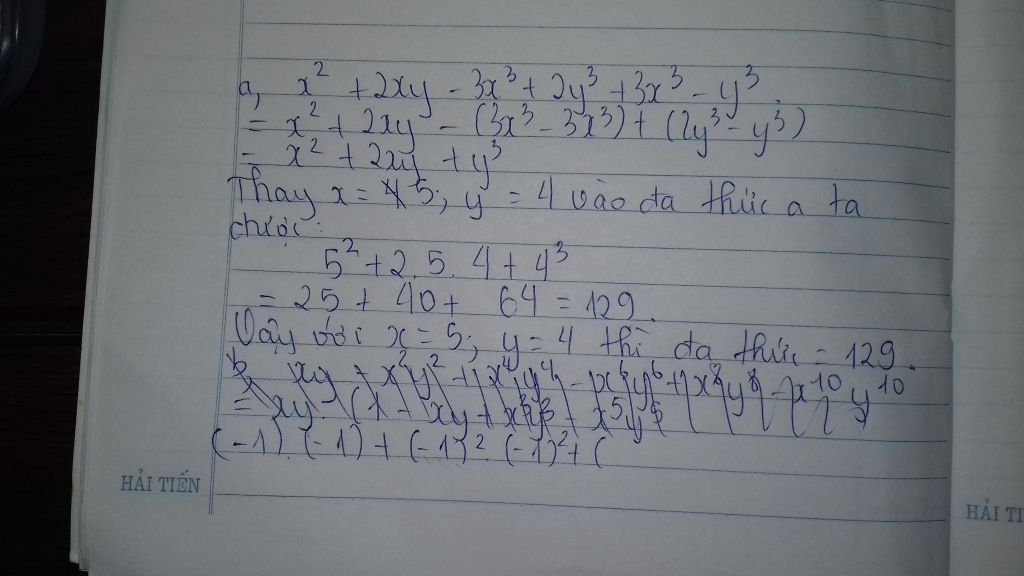 a, x² + 2xy - 3x³ + 2y³ + 3x³ - y³.
= x² + 2xy - (3x³ - 3x³) + (2y³ - y³)
= x² + 2xy + y³
Thay x = 5; y = 4 vào đa thức a ta
được:
5² + 2.5.4 + 4³
= 25 + 40 + 64 = 129.
Vậy với x = 5; y = 4 thì đa thức = 129.
b, xy + x²y² + x⁴y⁴ - x⁶y⁶ + x⁸y⁸ - x¹⁰y¹⁰
= xy.
(-1).(-1) + (-1)².(-1)² + (
HẢI TIẾN
HẢI TI